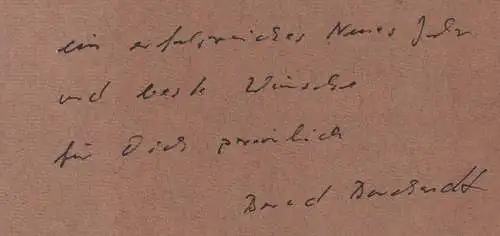 ein erfolgreiches Neues Jahr
und beste Wünsche
für Dich persönlich
Bernd